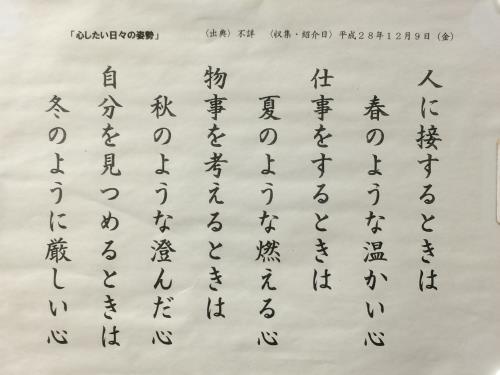 「心したい日々の姿勢」　〈出典〉不詳　〈収集・紹介日〉平成２８年１２月９日（金）
人に接するときは
春のような温かい心
仕事をするときは
夏のような燃える心
物事を考えるときは
秋のような澄んだ心
自分を見つめるときは
冬のように厳しい心